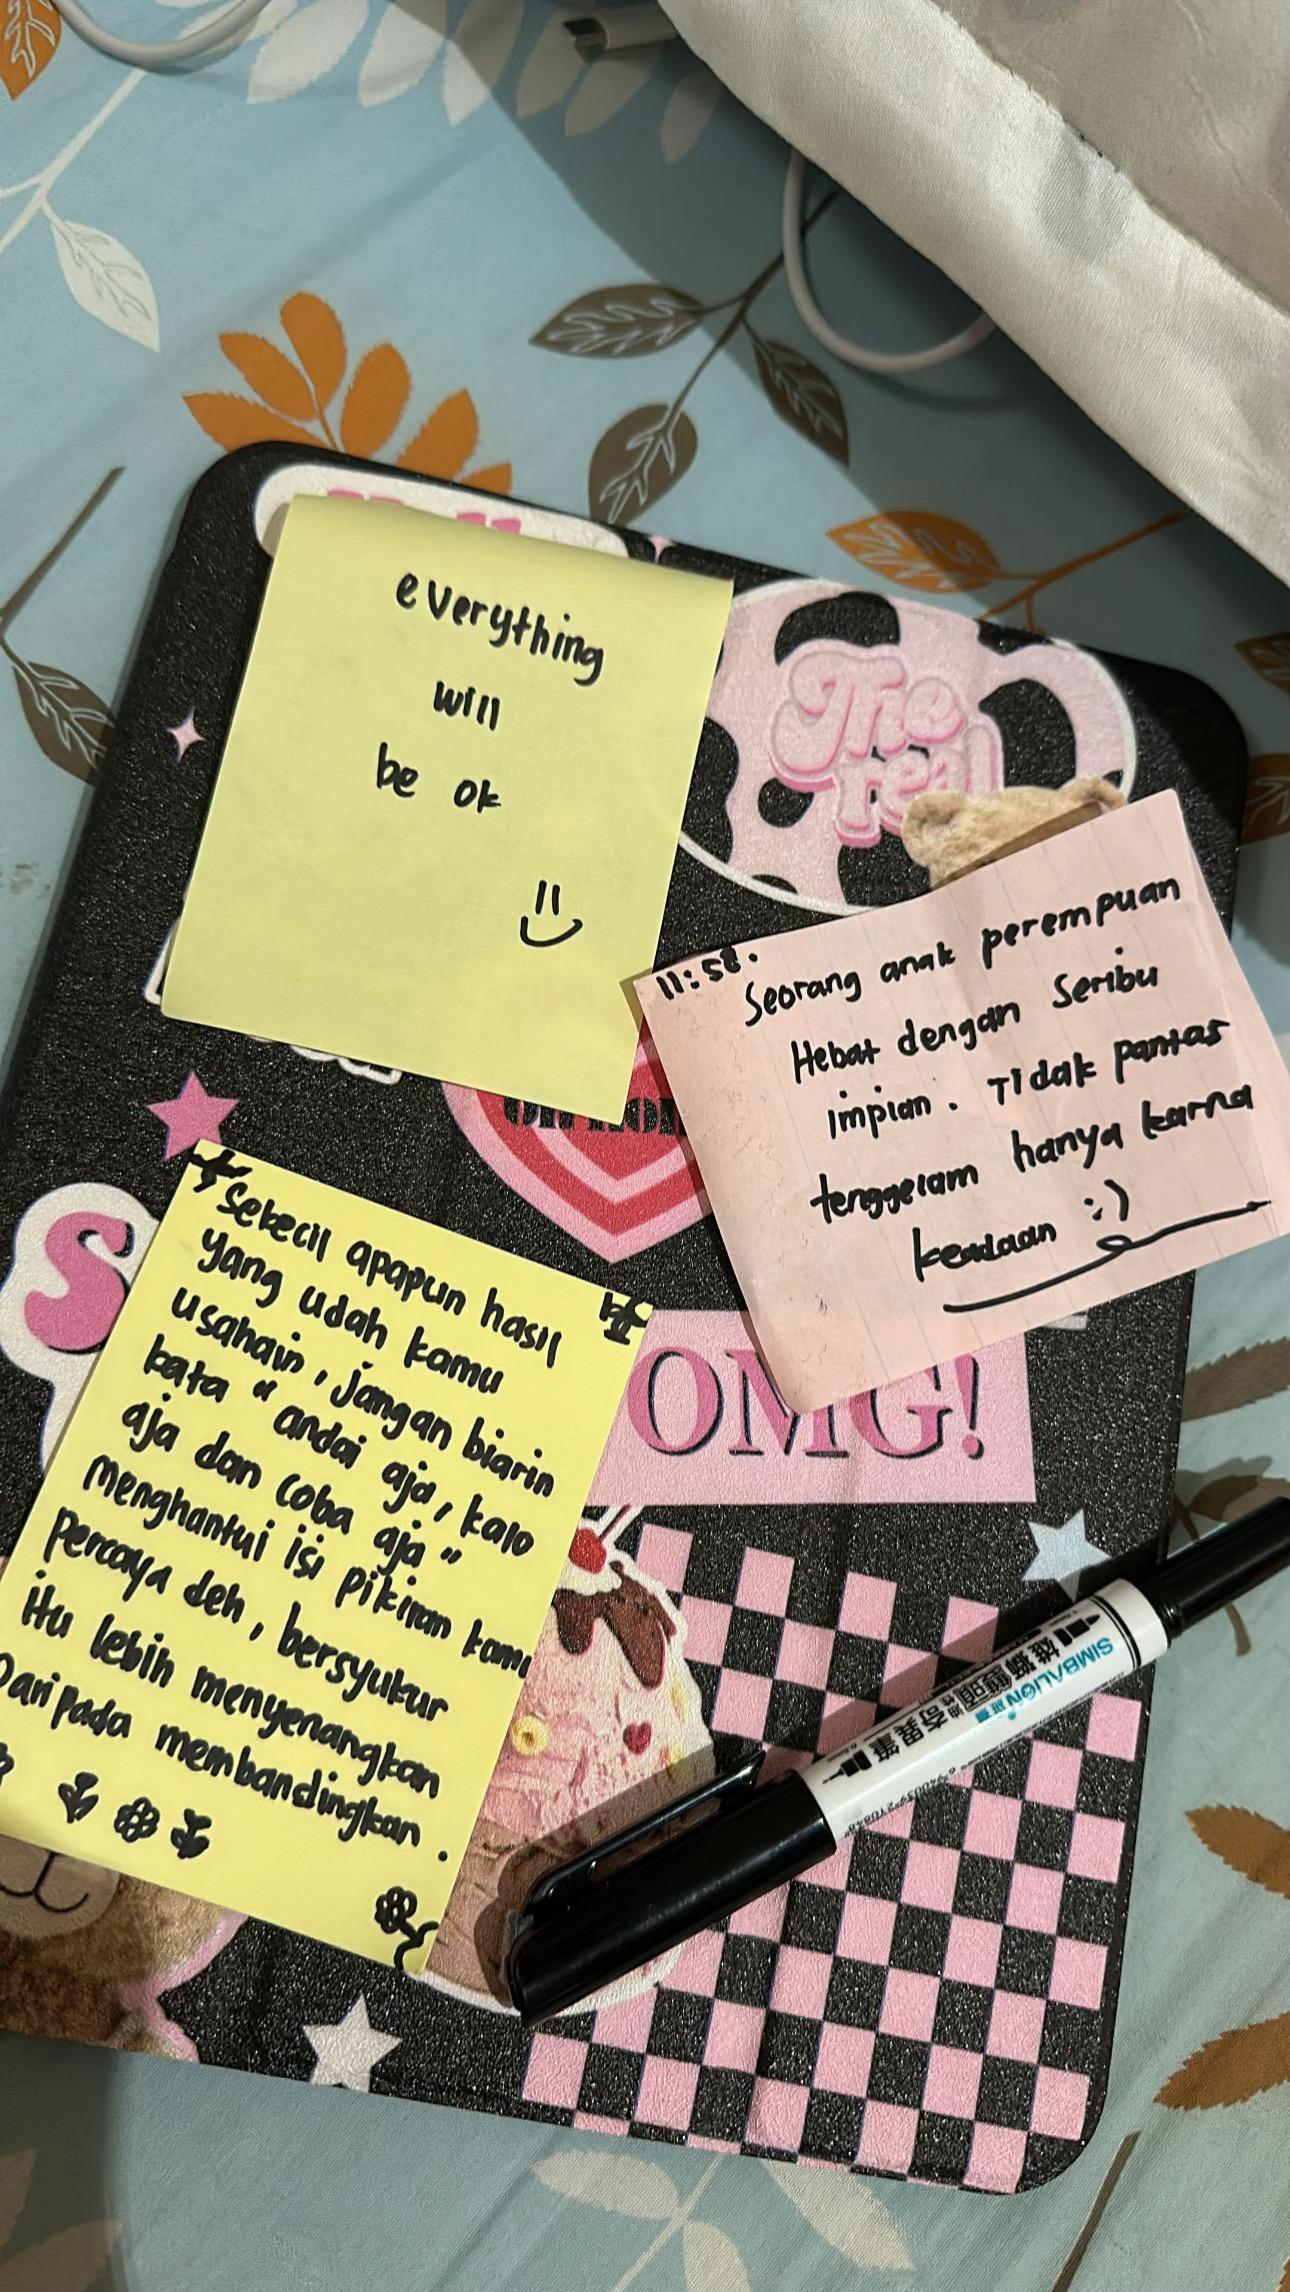 everything
will
be ok
The
real
11:58.
Seorang anak perempuan
Hebat dengan Seribu
impian. Tidak pantas
tenggelam hanya karna
keadaan :)
Sekecil apapun hasil
yang udah kamu
usahain, jangan biarin
kata "andai aja, kalo
aja dan coba aja"
menghantui isi pikiran kamu
percaya deh, bersyukur
itu lebih menyenangkan
Dari pada membandingkan.
S
OMG!
SIMBALION 雄獅
雄獅雙頭
奇異筆